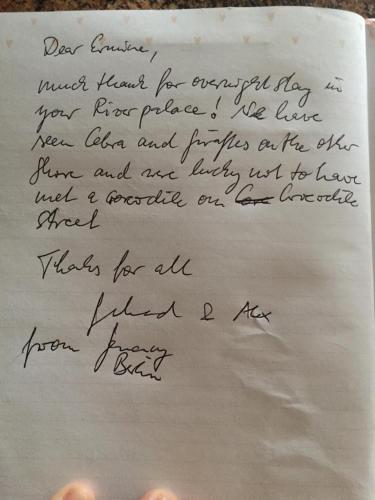 Dear Ermine,
much thank for overnight stay in
your River palace! We have
seen Cebra and giraffes on the other
shore and were lucky not to have
met a crocodile on Crocodile
street
Thanks for all
& Alex
from Germany
Berlin